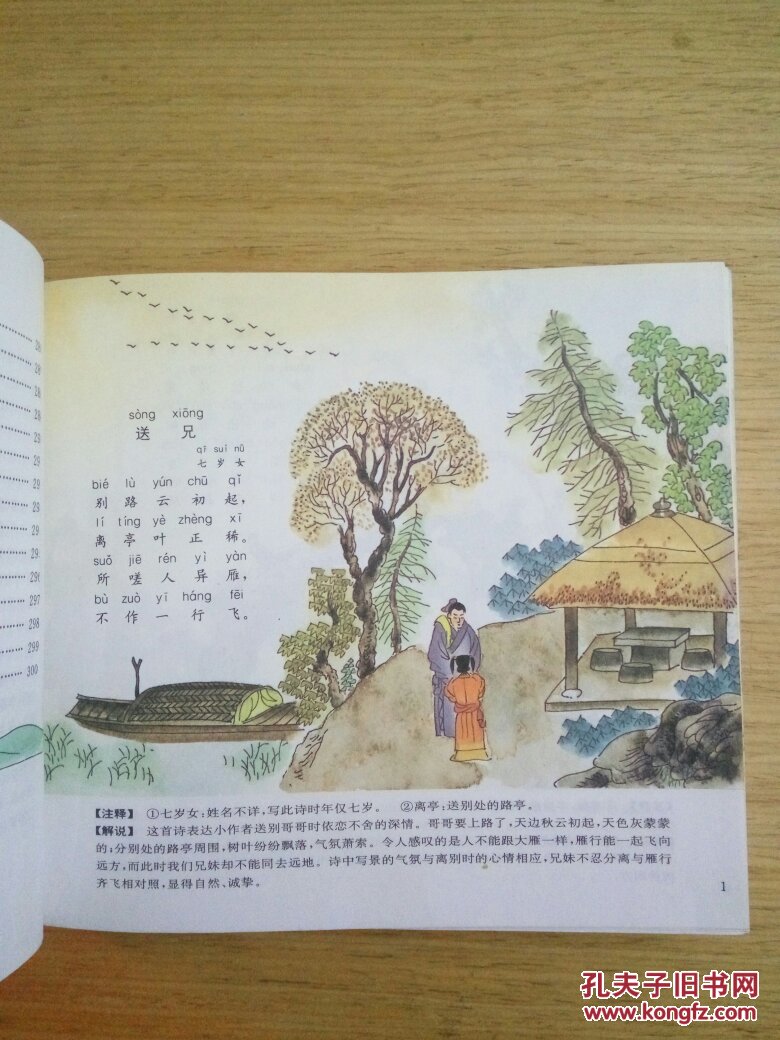 sòng xiōng
送 兄
qī suì nǚ
七 岁 女
bié lù yún chū qǐ
别 路 云 初 起，
lí tíng yè zhèng xī
离 亭 叶 正 稀。
suǒ jiē rén yì yàn
所 嗟 人 异 雁，
bù zuò yī háng fēi
不 作 一 行 飞。
【注释】 ①七岁女：姓名不详，写此诗时年仅七岁。 ②离亭：送别处的路亭。
【解说】 这首诗表达小作者送别哥哥时依恋不舍的深情。哥哥要上路了，天边秋云初起，天色灰蒙蒙
的；分别处的路亭周围，树叶纷纷飘落，气氛萧索。令人感叹的是人不能跟大雁一样，雁行能一起飞向
远方，而此时我们兄妹却不能同去远地。诗中写景的气氛与离别时的心情相应，兄妹不忍分离与雁行
齐飞相对照，显得自然、诚挚。
1
297
298
299
300
孔夫子旧书网
www.kongfz.com